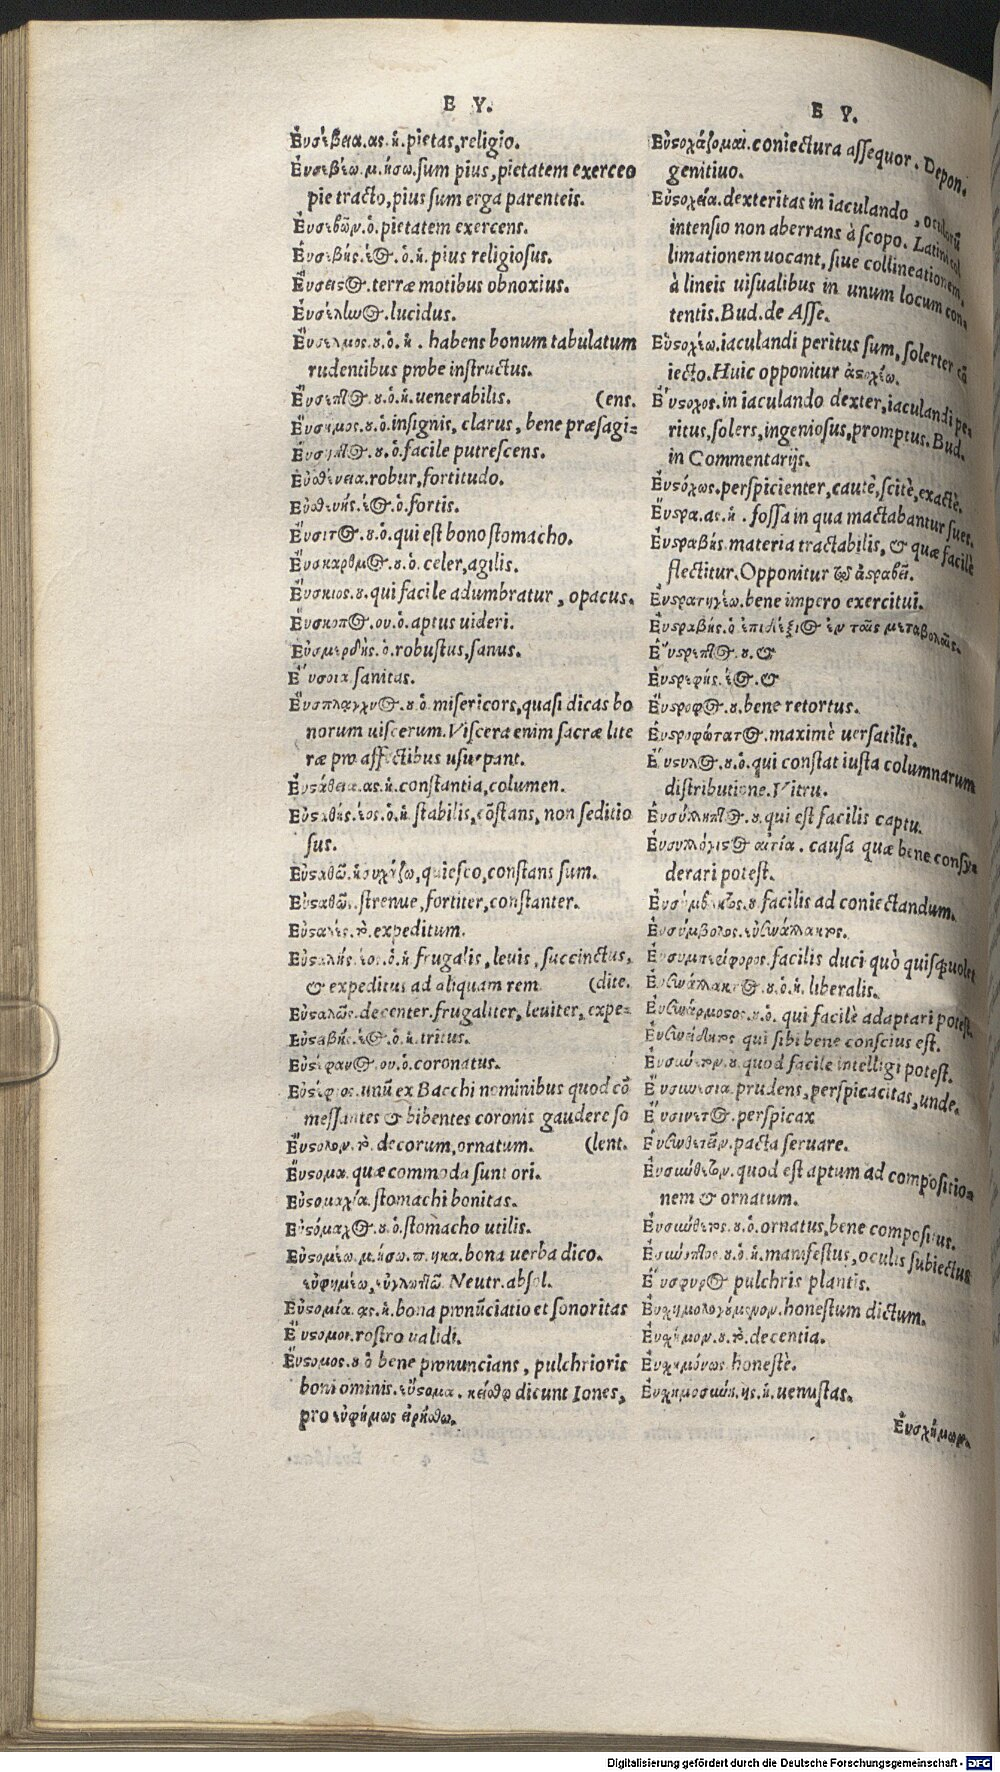 E Y.
Εὐσέβεια.ας.ἡ.pietas,religio.
Εὐσεβέω.μ.ήσω.sum pius,pietatem exerceo
pie tracto,pius sum erga parenteis.
Εὐσεβῶν.ὁ.pietatem exercens.
Εὐσεβής.έος.ὁ.ἡ.pius religiosus.
Εὔσειστος.terræ motibus obnoxius.
Εὐσέληνος.lucidus.
Εὔσελμος.ου.ὁ.ἡ. habens bonum tabulatum
rudentibus probe instructus.
Εὔσεπτος.ου.ὁ.ἡ.uenerabilis. (ens.
Εὔσημος.ου.ὁ.insignis, clarus, bene præsagi=
Εὔσηπτος.ου.ὁ.facile putrescens.
Εὐσθένεια.robur,fortitudo.
Εὐσθενής.έος.ὁ.fortis.
Εὔσιτος.ου.ὁ.qui est bono stomacho.
Εὔσκαρθμος.ου.ὁ.celer,agilis.
Εὔσκιος.ου.qui facile adumbratur, opacus.
Εὔσκοπος.ου.ὁ.aptus uideri.
Εὐσμερδὴς.ὁ.robustus,sanus.
Εὔσοια.sanitas.
Εὔσπλαγχνος.ου.ὁ.misericors,quasi dicas bo
norum uiscerum.Viscera enim sacræ lite
ræ pro affectibus usurpant.
Εὐστάθεια.ας.ἡ.constantia,columen.
Εὐσταθής.έος.ὁ.ἡ.stabilis,cōstans, non seditio
sus.
Εὐσταθῶ.ἡσυχάζω,quiesco,constans sum.
Εὐσταθῶς.strenue,fortiter,constanter.
Εὐσταλές.τό.expeditum.
Εὐσταλής.έος.ὁ.ἡ frugalis, leuis, succinctus,
& expeditus ad aliquam rem (dite.
Εὐσταλῶς.decenter.frugaliter, leuiter, expe=
Εὐσταβής.έος.ὁ.ἡ.tritus.
Εὐστέφανος.ου.ὁ.coronatus.
Εὐστέφιος.unū ex Bacchi nominibus quod cō
messantes & bibentes coronis gaudere so
Εὔστολον.τό.decorum,ornatum. (lent.
Εὔστομα.quæ commoda sunt ori.
Εὐστομαχία.stomachi bonitas.
Εὐστόμαχος.ου.ὁ.stomacho utilis.
Εὐστομέω.μ.ήσω.π.ηκα.bona uerba dico.
εὐφημέω,εὐγλωττῶ. Neutr.absol.
Εὐστομία.ας.ἡ.bona pronūciatio et sonoritas
Εὔστομοι.rostro ualidi.
Εὔστομος.ου.ὁ bene pronuncians, pulchrioris
boni ominis.εὔστομα. κείσθω dicunt Iones,
pro εὐφήμως εἰρήσθω.
E Y.
Εὐστοχάζομαι.coniectura assequor. Depon.
genitiuo.
Εὐστοχεία.dexteritas in iaculando, oculorū
intensio non aberrans à scopo. Latini col
limationem uocant, siue collineationem,
à lineis uisualibus in unum locum con=
tentis.Bud.de Asse.
Εὐστοχέω.iaculandi peritus sum, solerter cō
iecto.Huic opponitur ἀστοχέω.
Εὔστοχος.in iaculando dexter,iaculandi pe=
ritus,solers,ingeniosus,promptus.Bud.
in Commentarijs.
Εὐστόχως.perspicienter,cautè,scitè,exactè.
Εὔστρα.ας.ἡ. fossa in qua mactabantur sues.
Εὐστραβής.materia tractabilis, & quæ facilè
flectitur.Opponitur τῷ ἀστραβεῖ.
Εὐστρατηγέω.bene impero exercitui.
Εὐστραβής.ὁ ἐπιδέξιος ἐν ταῖς μεταβολαῖς.
Εὔστρεπτος.ου.&
Εὐστρεφής.έος.&
Εὔστροφος.ου.bene retortus.
Εὐστροφώτατος.maximè uersatilis.
Εὔστυλος.ου.ὁ.qui constat iusta columnarum
distributione.Vitru.
Εὐσύλληπτος.ου.qui est facilis captu.
Εὐσυλλόγιστος αἰτία. causa quæ bene consy=
derari potest.
Εὐσύμβλητος.ου facilis ad coniectandum.
Εὐσύμβολος.εὐσυνάλλακτος.
Εὐσυμπερίφορος.facilis duci quò quisq;uolet
Εὐσυνάλλακτος.ου.ὁ.ἡ.liberalis.
Εὐσυνάρμοστος.ου.ὁ. qui facilè adaptari potest.
Εὐσυνείδητος qui sibi bene conscius est.
Εὐσύνετον.ου.quod facile intelligi potest.
Εὐσυνεσία.prudens,perspicacitas,unde.
Εὐσύνετος.perspicax
Εὐσυνθετεῖν.pacta seruare.
Εὐσύνθετον.quod est aptum ad compositio=
nem & ornatum.
Εὐσύνθετος.ου.ὁ.ornatus,bene compositus.
Εὐσύνοπτος.ου.ὁ.ἡ.manifestus,oculis subiectus
Εὔσφυρος pulchris plantis.
Εὐσχημολογούμενον.honestum dictum.
Εὔσχημον.ου.τό.decentia.
Εὐσχημόνως honestè.
Εὐσχημοσύνη.ης.ἡ.uenustas.
Εὐσχήμων.
Digitalisierung gefördert durch die Deutsche Forschungsgemeinschaft - DFG